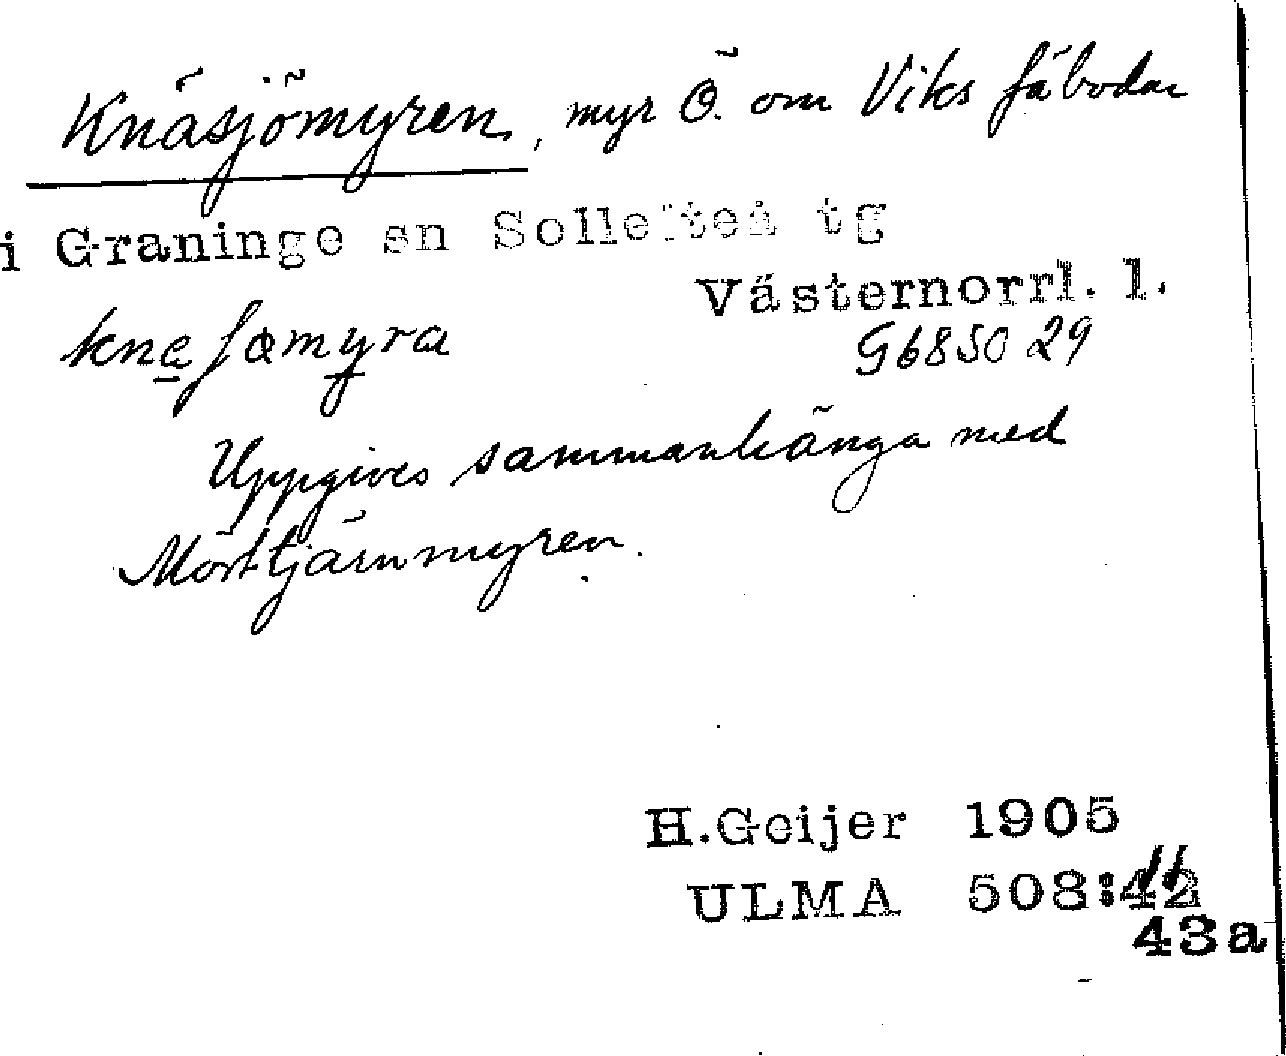 Knäsjömyren, myr Ö. om Viks fäbodar
i Graninge sn Sollefteå tg
Västernorrl. l.
kneʃømyra
G6850 29
Uppgives sammanhänga med
Mörttjärnmyren.
H.Geijer 1905
ULMA 508:42
43a